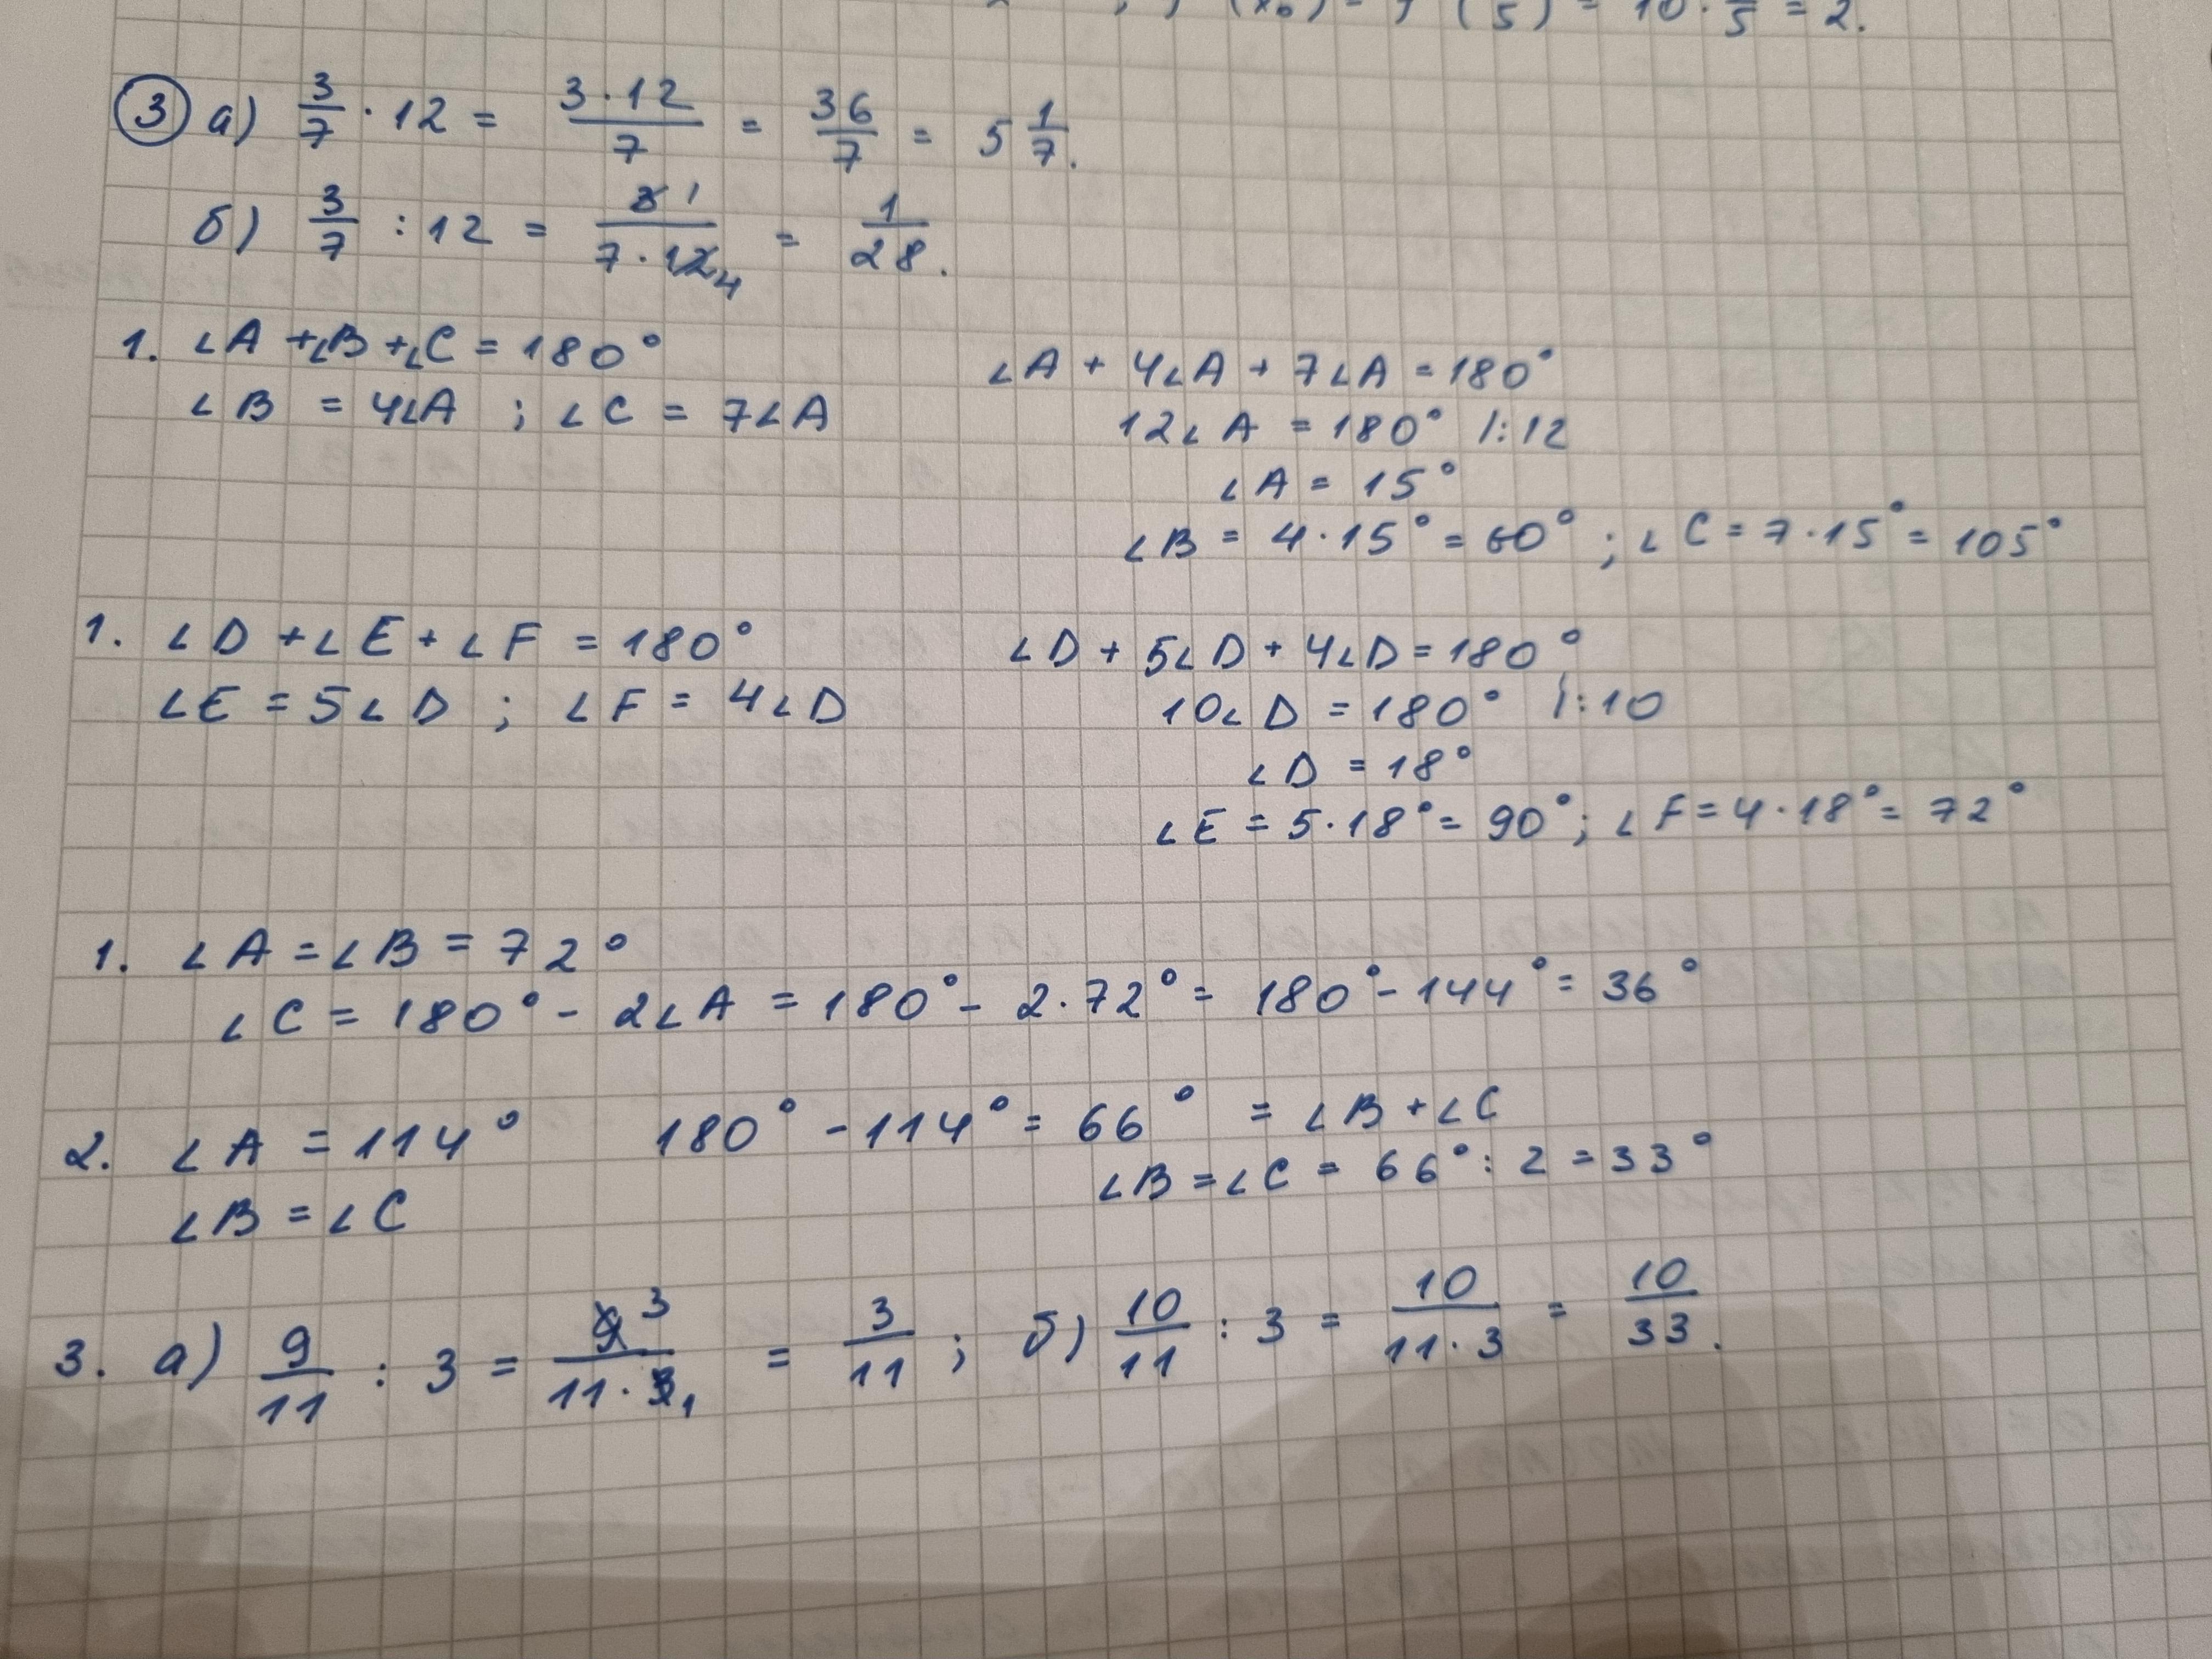 10 · 5 = 2.
③ а) 3/7 · 12 = 3·12/7 = 36/7 = 5 1/7.
б) 3/7 : 12 = 3 1/7·12 4 = 1/28.
1. ∠A + ∠B + ∠C = 180°
∠B = 4∠A ; ∠C = 7∠A
∠A + 4∠A + 7∠A = 180°
12∠A = 180° |:12
∠A = 15°
∠B = 4·15° = 60° ; ∠C = 7·15° = 105°
1. ∠D + ∠E + ∠F = 180°
∠E = 5∠D ; ∠F = 4∠D
∠D + 5∠D + 4∠D = 180°
10∠D = 180° |:10
∠D = 18°
∠E = 5·18° = 90° ; ∠F = 4·18° = 72°
1. ∠A = ∠B = 72°
∠C = 180° - 2∠A = 180° - 2·72° = 180° - 144° = 36°
2. ∠A = 114° 180° - 114° = 66° = ∠B + ∠C
∠B = ∠C ∠B = ∠C = 66° : 2 = 33°
3. а) 9/11 : 3 = 9 3/11·3 1 = 3/11 ; б) 10/11 : 3 = 10/11·3 = 10/33.